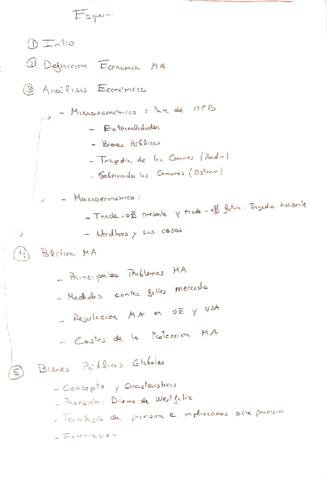 Esquem
① Intro
② Definicion Economía MA
③ Análisis Económico
- Microeconómico: Parte de
- Externalidades
- Bienes Públicos
- Tragedia de los Comunes (Hardin)
- Gobernando los Comunes (Ostrom)
- Macroeconómico:
- Trade-off presente y trade-off futuro: Tragedia horizonte
- Nordhaus y sus cosas
④ Política MA
- Principales Problemas MA
- Medidas contra fallos mercado
- Regulacion MA en UE y USA
- Costes de la Proteccion MA
⑤ Bienes Públicos Globales
- Concepto y Características
- Provisión: Dilema de Westfalia
- Tecnología de provision e implicaciones sobre provision
- Financiacion